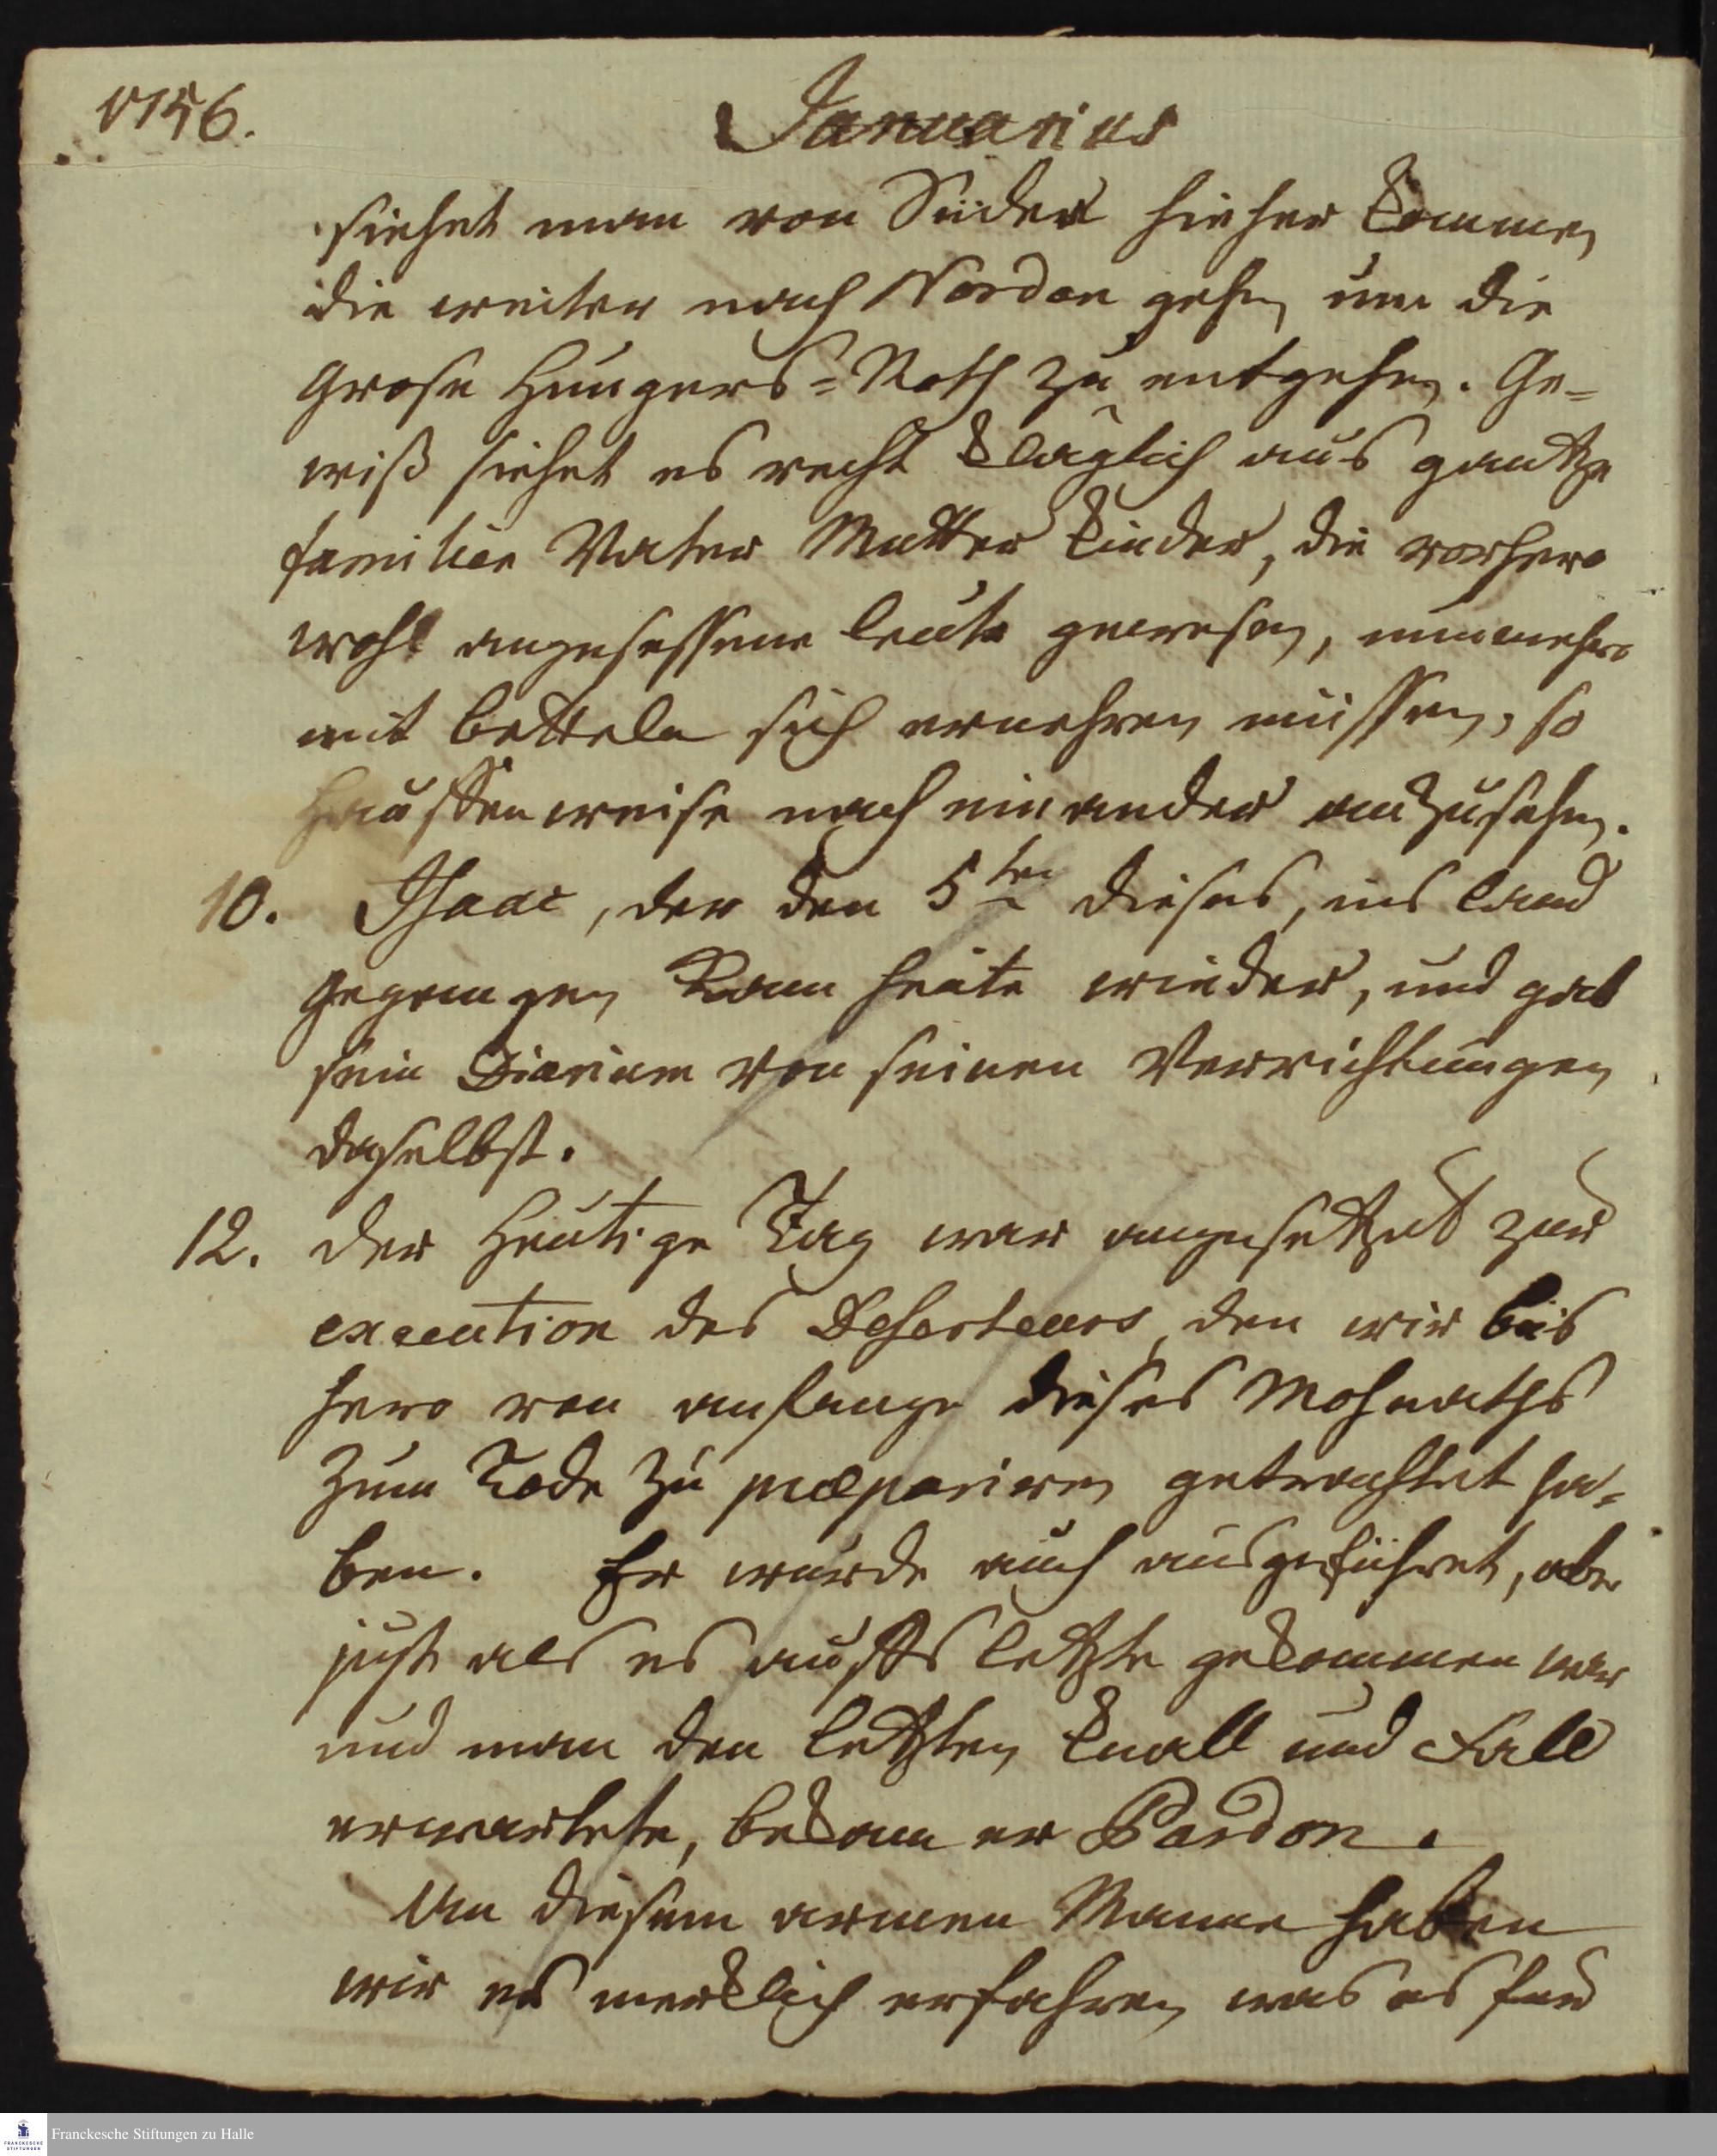 1756.
Januarius
siehet man von Süder hieher kommen
die weiter nach Norden gehen um die
Grose Hungers-Noth zu entgehen. Ge-
wiß siehet es recht kläglich aus gantze
familien Vater Mutter kinder, die vorhero
wohl angesessene leute gewesen, nunmehro
mit betteln sich ernehren müssen, so
Hauffenweise nach einander anzusehen.
10. Isaac, der den 5ten dieses, ins land
gegangen kam heute wieder, und gab
sein Diarium von seinen Verrichtungen
daselbst.
12. der Heutige Tag war angesetzet zur
execution des Deserteurs, den wir bis
hero von anfange dieses Mohnaths
zum Tode zu præpariren getrachtet ha-
ben. Er wurde auch ausgeführet, aber
just als es auffs letzte gekommen war
und man den letzten knall und Fall
erwartete, bekam er Pardon.
An diesem armen Manne haben
wir es mercklich erfahren, was es für
Franckesche Stiftungen zu Halle
FRANCKESCHE
STIFTUNGEN